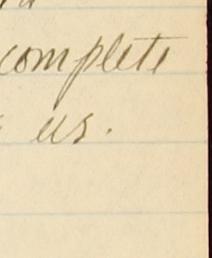 complete
us.